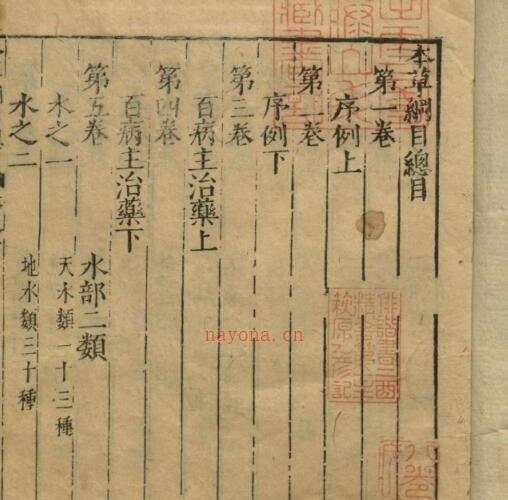 本草綱目總目
第一卷
序例上
第二卷
序例下
第三卷
百病主治藥上
第四卷
百病主治藥下
第五卷 水部二類
水之一 天水類一十三種
水之二 地水類三十種
nayona.cn